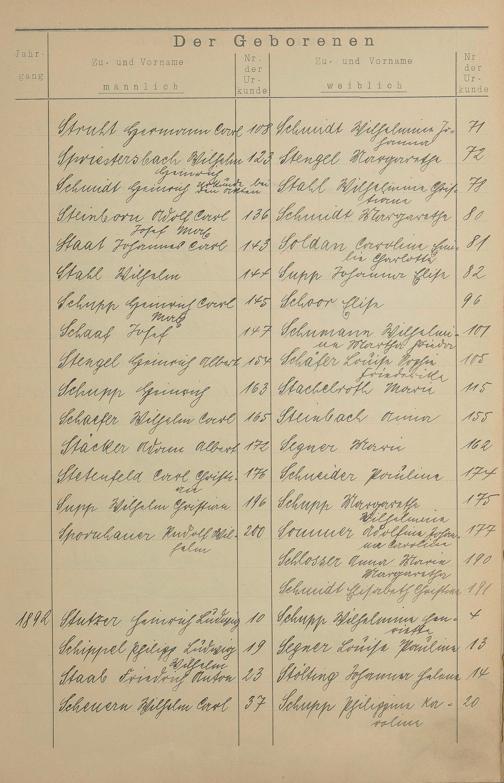 Der Geborenen
Jahr-
gang
Zu- und Vorname
männlich
Nr.
der
Ur-
kunde
Zu- und Vorname
weiblich
Nr.
der
Ur-
kunde
Struht Hermann Carl 108 Schmidt Wilhelmine Jo- 71
hanna
Spriestersbach Wilhelm 123 Stengel Margarethe 72
Heinrich
Schmidt Heinrich Urkunde bei Stahl Wilhelmine Chris- 78
den Akten
tiane
Steinborn Adolf Carl 136 Schmidt Margarethe 80
Josef Max
Staat Johannes Carl 143 Soldan Caroline Emi- 81
lie Charlotte
Stahl Wilhelm 144 Supp Johanna Elise 82
Schupp Heinrich Carl 145 Schoor Elise 96
Max
Schaaf Josef 147 Schumann Wilhelmi- 101
ne Martha
Stengel Heinrich Albert 154 Schäfer Louise Sophie 105
Friederike
Schupp Heinrich 163 Stachelroth Marie 115
Schaefer Wilhelm Carl 165 Steinbach Anna 155
Stäcker Adam Albert 172 Segner Marie 162
Stetenfeld Carl Christi- 176 Schneider Pauline 174
an
Supp Wilhelm Christian 196 Schupp Margarethe 175
Wilhelmine
Spornhauer Rudolf Wil- 200 Sommer Adolfine Johan- 177
helm
na Caroline
Schlosser Anna Marie 190
Margaretha
Schmidt Elisabeth Christine 191
1892 Stutzer Heinrich Ludwig 10 Schupp Wilhelmine Hen- 4
riette
Schippel Philipp Ludwig 19 Segner Louise Pauline 13
Wilhelm
Staab Friedrich Anton 23 Stölting Johanna Helene 14
Scheuern Wilhelm Carl 37 Schupp Philippine Ka- 20
roline